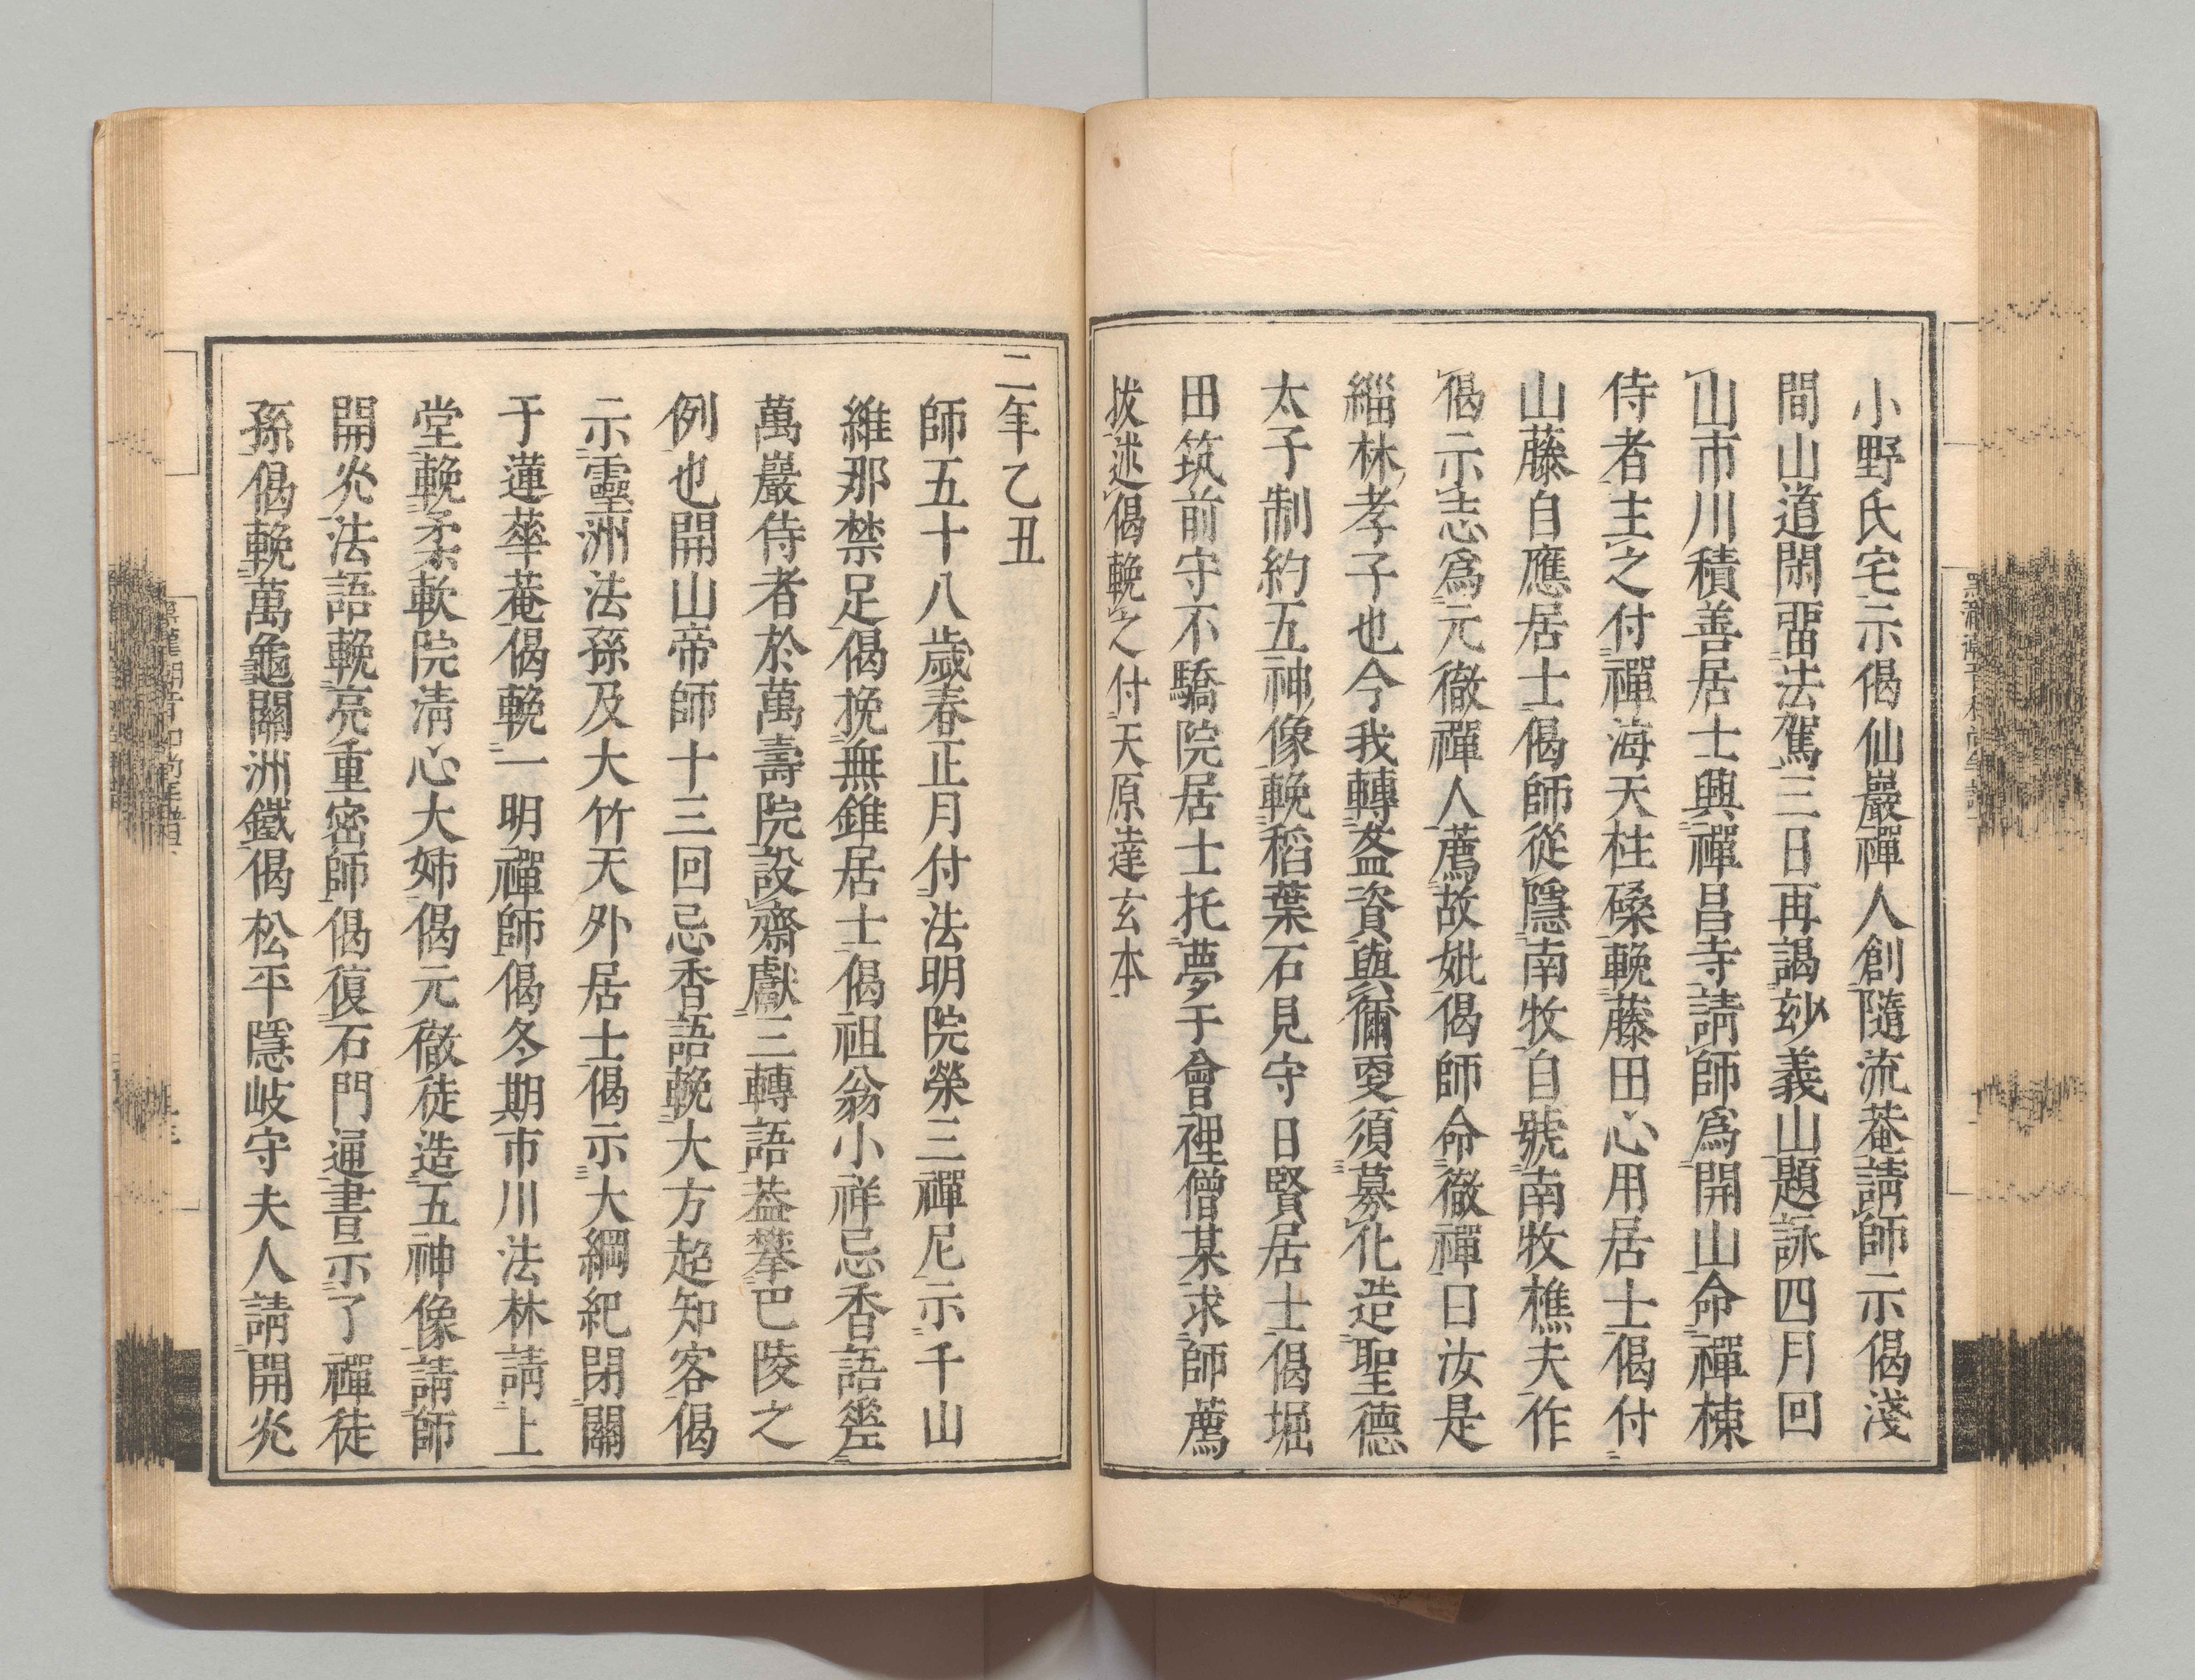 小野氏宅示偈仙巖禪人創隨流菴請師示偈淺
間山道閑畱法駕三日再謁玅義山題詠四月回
山市川積善居士興禪昌寺請師爲開山命禪棟
侍者主之付禪海天柱礀輓藤田心用居士偈付
山藤自應居士偈師從隱南牧自號南牧樵夫作
偈示志爲元徹禪人薦故妣偈師命徹禪曰汝是
緇林孝子也今我轉益資與爾耎須募化造聖德
太子制約五神像輓稻葉石見守日賢居士偈堀
田筑前守不驕院居士托夢于會裡僧某求師薦
拔述偈輓之付天原達玄本
二年乙丑
師五十八歲春正月付法明院榮三禪尼示千山
維那禁足偈挽無錐居士偈祖翁小祥忌香語塟
萬巖侍者於萬壽院設齋獻三轉語葢攀巴陵之
例也開山帝師十三回忌香語輓大方超知客偈
示靈洲法孫及大竹天外居士偈示大綱紀閉關
于蓮華菴偈輓一明禪師偈冬期市川法林請上
堂輓柔軟院清心大姊偈元徹徒造五神像請師
開光法語輓亮重密師偈復石門逼書示了禪徒
孫偈輓萬龜關洲鐵偈松平隱岐守夫人請開光